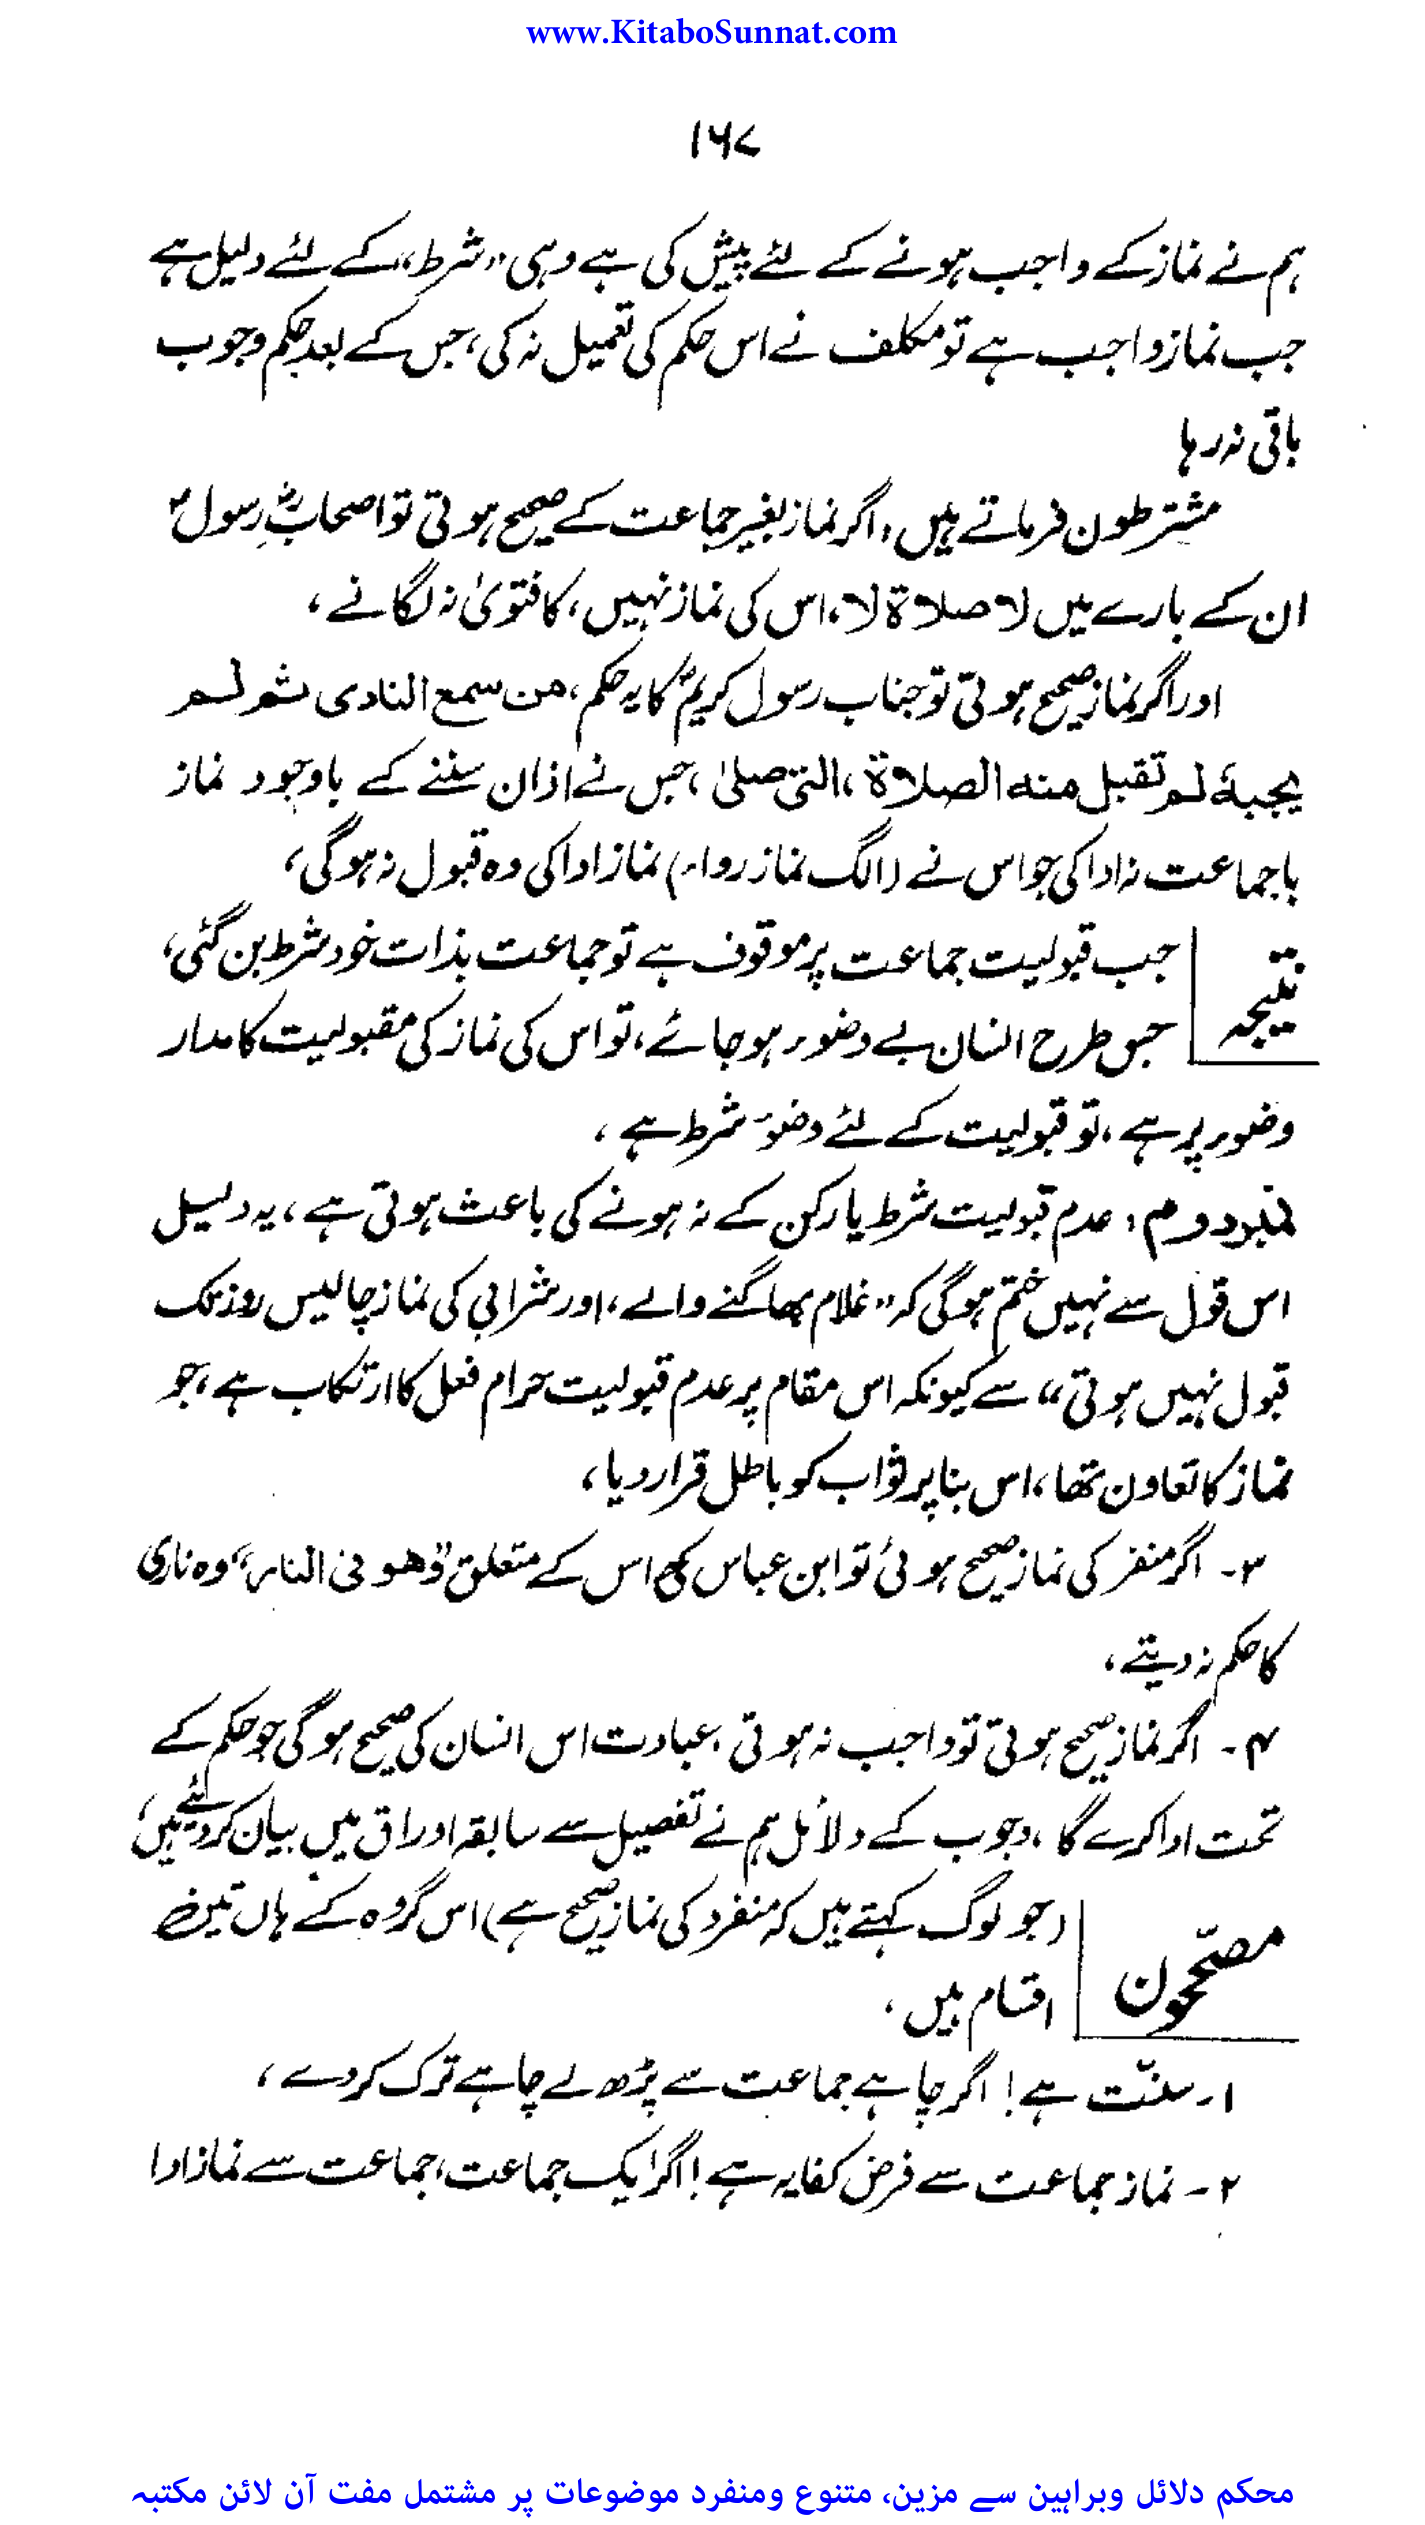 www.KitaboSunnat.com
۱۶۷
ہم نے نماز کے واجب ہونے کے لئے پیش کی ہے وہی "شرط" کے لئے دلیل ہے
جب نماز واجب ہے تو مکلف نے اس حکم کی تعمیل نہ کی، جس کے بعد حکم وجوب
باقی نہ رہا
مشترطون فرماتے ہیں، اگر نماز بغیر جماعت کے صحیح ہوتی تو اصحابؓ رسولؐ
ان کے بارے میں لا صلاۃ لا، اس کی نماز نہیں، کا فتویٰ نہ لگاتے،
اور اگر نماز صحیح ہوتی تو جناب رسول کریمؐ کا یہ حکم، من سمع النادی ثم لم
یجبہ لم تقبل منہ الصلاۃ، التی صلیٰ، جس نے اذان سننے کے باوجود نماز
باجماعت نہ ادا کی جو اس نے (الگ نماز روا) نماز ادا کی وہ قبول نہ ہوگی،
نتیجہ
جب قبولیت جماعت پر موقوف ہے تو جماعت بذات خود شرط بن گئی،
جس طرح انسان بے وضوء ہو جائے، تو اس کی نماز کی مقبولیت کا مدار
وضوء پر ہے، تو قبولیت کے لئے وضوء شرط ہے،
نمبر دوم، عدم قبولیت شرط یا رکن کے نہ ہونے کی باعث ہوتی ہے، یہ دلیل
اس قول سے نہیں ختم ہوگی کہ "غلام بھاگنے والے، اور شرابی کی نماز چالیس روز تک
قبول نہیں ہوتی" سے کیونکہ اس مقام پر عدم قبولیت حرام فعل کا ارتکاب ہے، جو
نماز کا تعاون تھا، اس بنا پر ثواب کو باطل قرار دیا،
۳۔ اگر منفر کی نماز صحیح ہوئی تو ابن عباس کی اس کے متعلق "وھو فی النار" وہ ناری
کا حکم نہ دیتے،
۴۔ اگر نماز صحیح ہوتی تو واجب نہ ہوتی، عبادت اس انسان کی صحیح ہوگی جو حکم کے
تحت ادا کرے گا، وجوب کے دلائل ہم نے تفصیل سے سابقہ اوراق میں بیان کر دیئے ہیں،
مصححون
(جو لوگ کہتے ہیں کہ منفرد کی نماز صحیح ہے) اس گروہ کے ہاں تین
اقسام ہیں،
۱۔ سنّت ہے! اگر چاہے جماعت سے پڑھ لے چاہے ترک کر دے،
۲۔ نماز جماعت سے فرض کفایہ ہے! اگر ایک جماعت، جماعت سے نماز ادا
محکم دلائل وبراہین سے مزین، متنوع ومنفرد موضوعات پر مشتمل مفت آن لائن مکتبہ